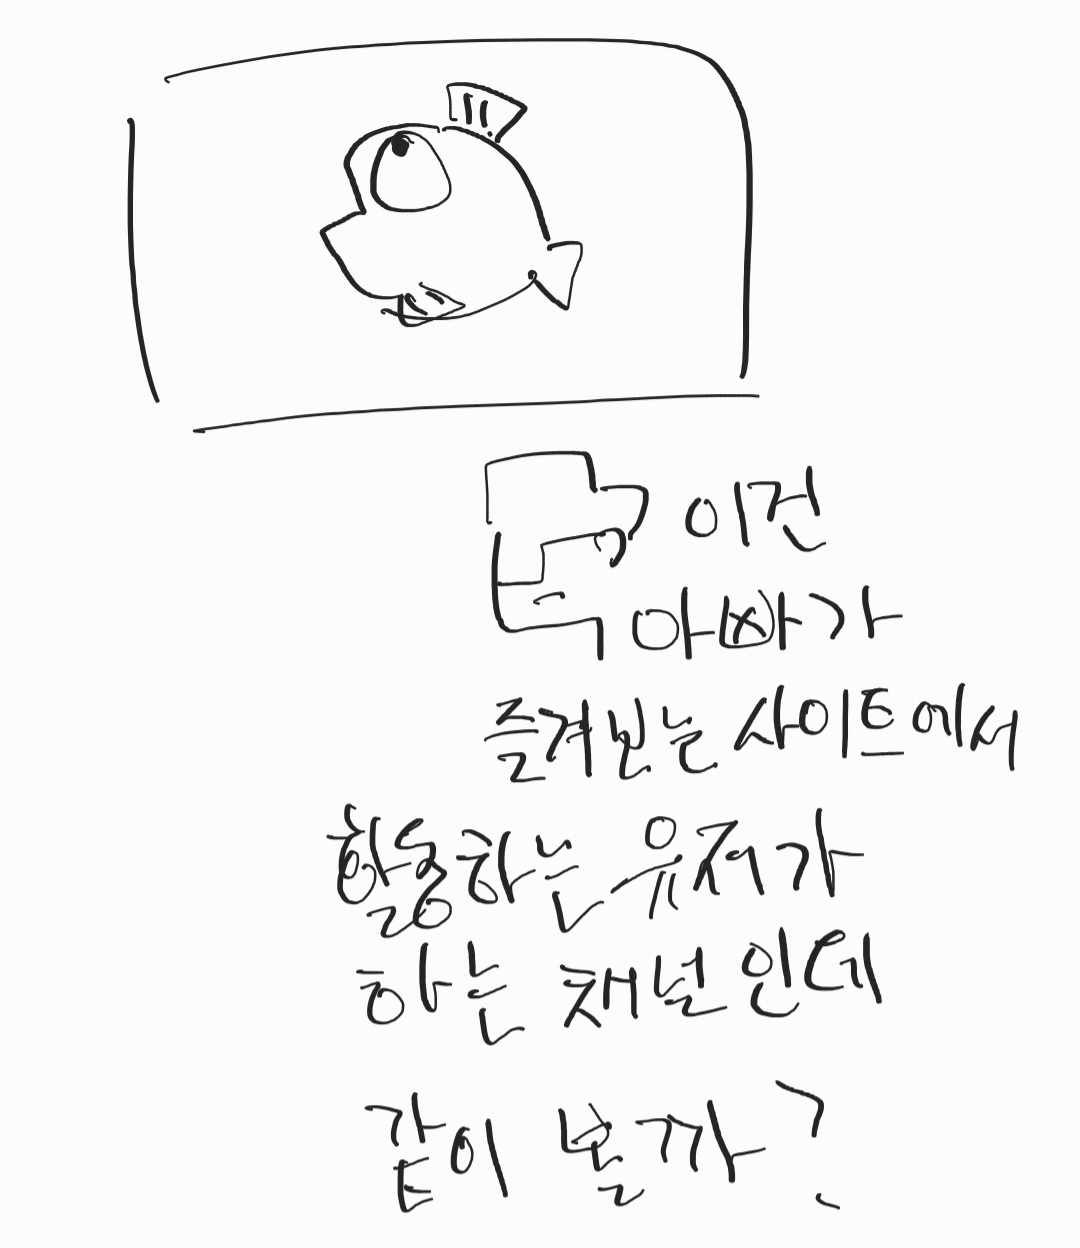 이건
아빠가
즐겨보는 사이트에서
활동하는 유저가
하는 채널인데
같이 볼까?